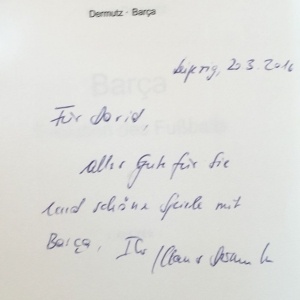 Dermutz · Barça
Leipzig, 20.3.2016
Barça
Für David,
alles Gute für Sie
und schöne Spiele mit
Barça, Ihr Klaus Dermutz